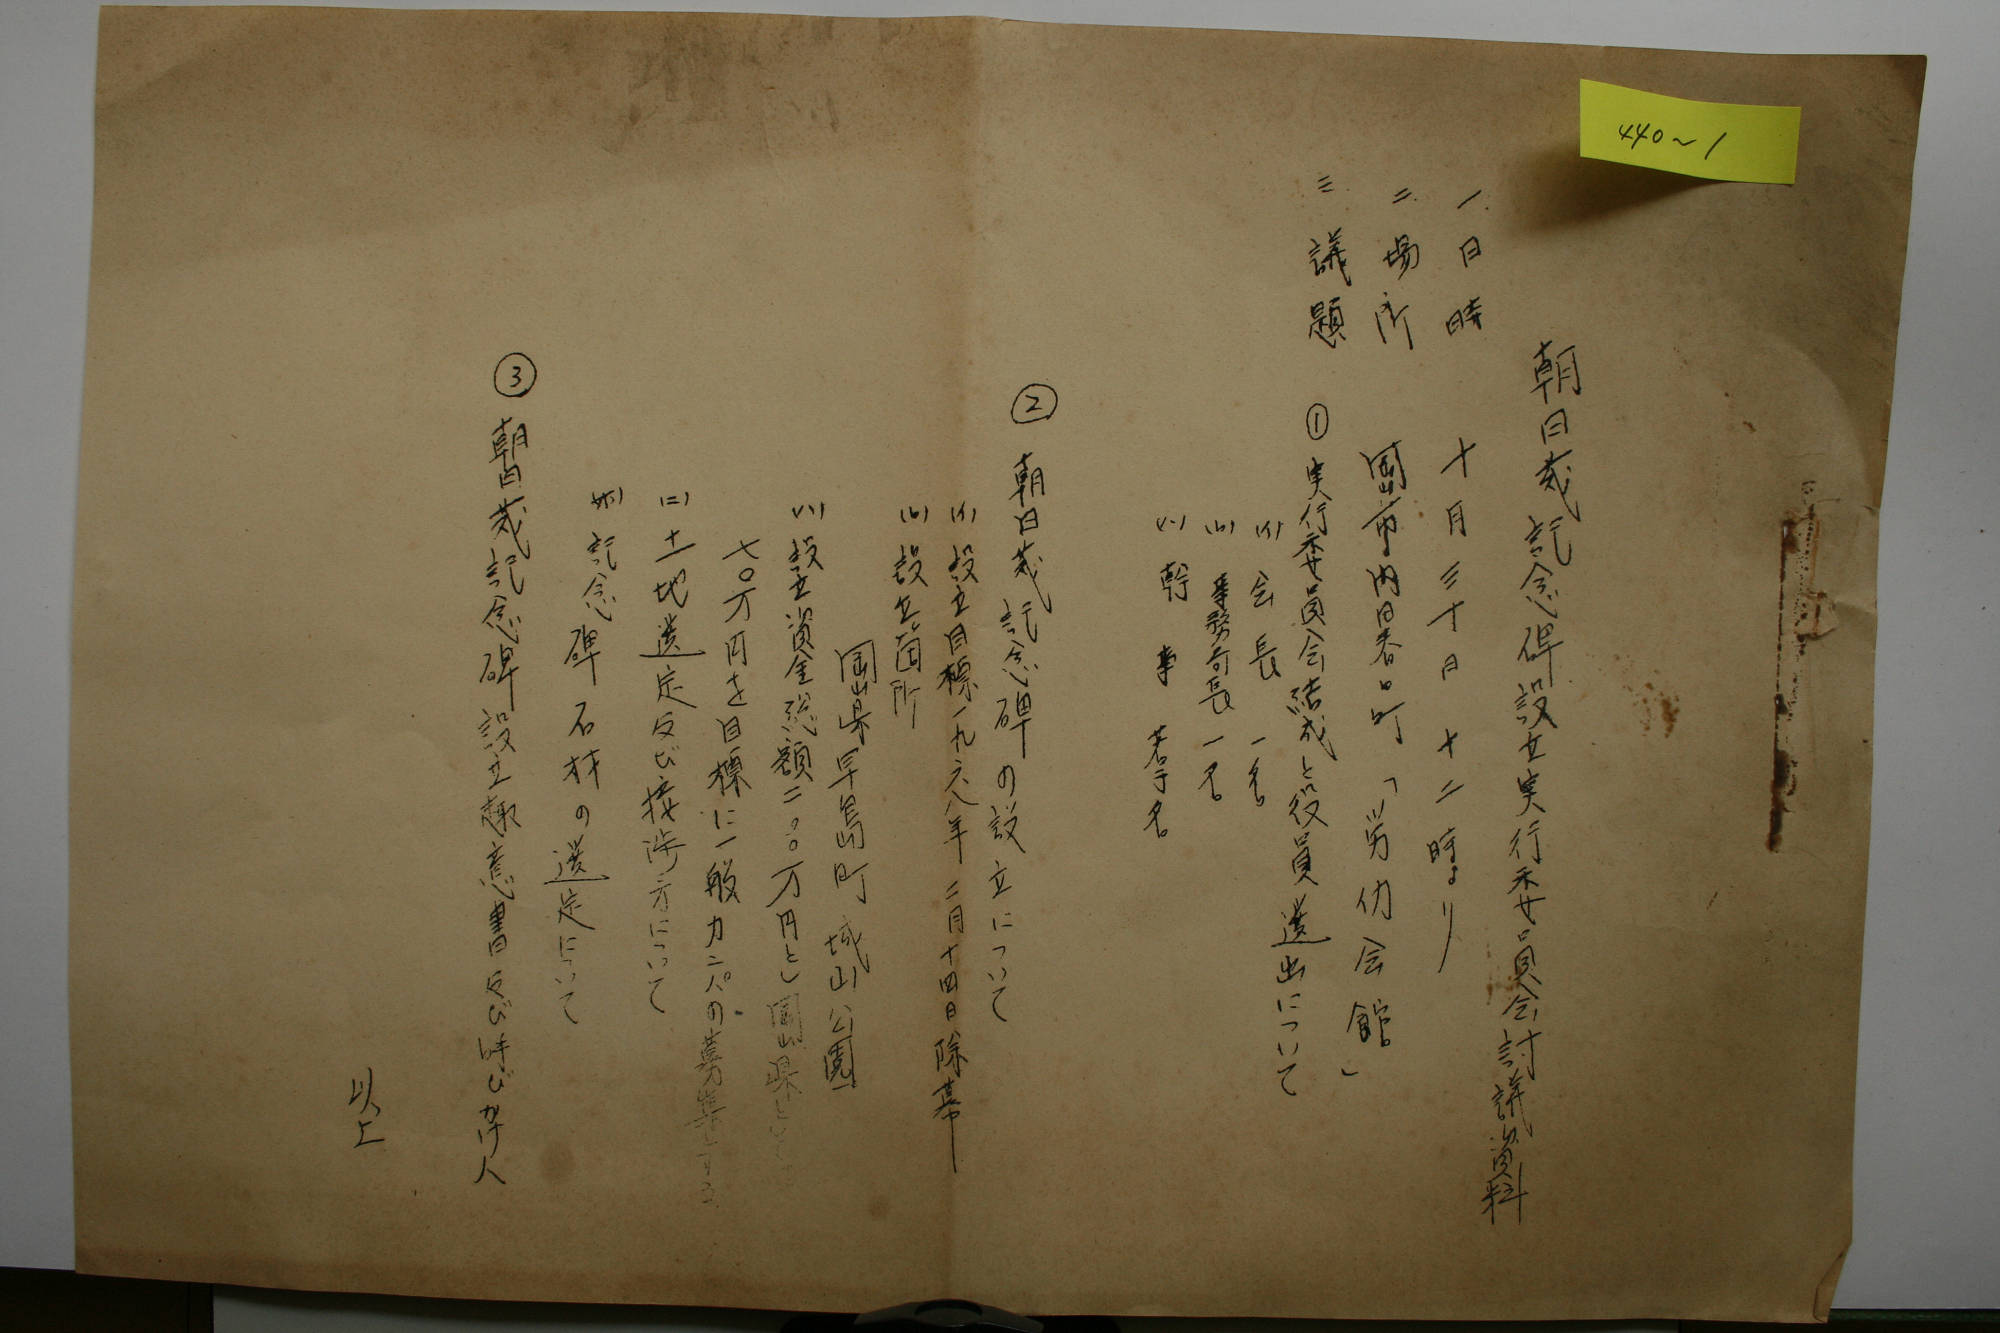 440~1
朝日茂記念碑設立実行委員会討議資料
一.日時 十月三十日 十二時より
二.場所 岡山市内日春町「労仂会館」
三.議題 ① 実行委員会結成と役員選出について
(イ) 会長 一名
(ロ) 事務局長 一名
(ハ) 幹事 若干名
② 朝日茂記念碑の設立について
(イ) 設立目標一九六八年二月十四日除幕
(ロ) 設立箇所
岡山県早島町 城山公園
(ハ) 設立資金総額二〇〇万円とし岡山県として
七〇万円を目標に一般カンパの募集をする
(ニ) 土地選定反び接渉方について
(ホ) 記念碑石材の選定について
③ 朝日茂記念碑設立趣意書反び呼びかけ人
以上